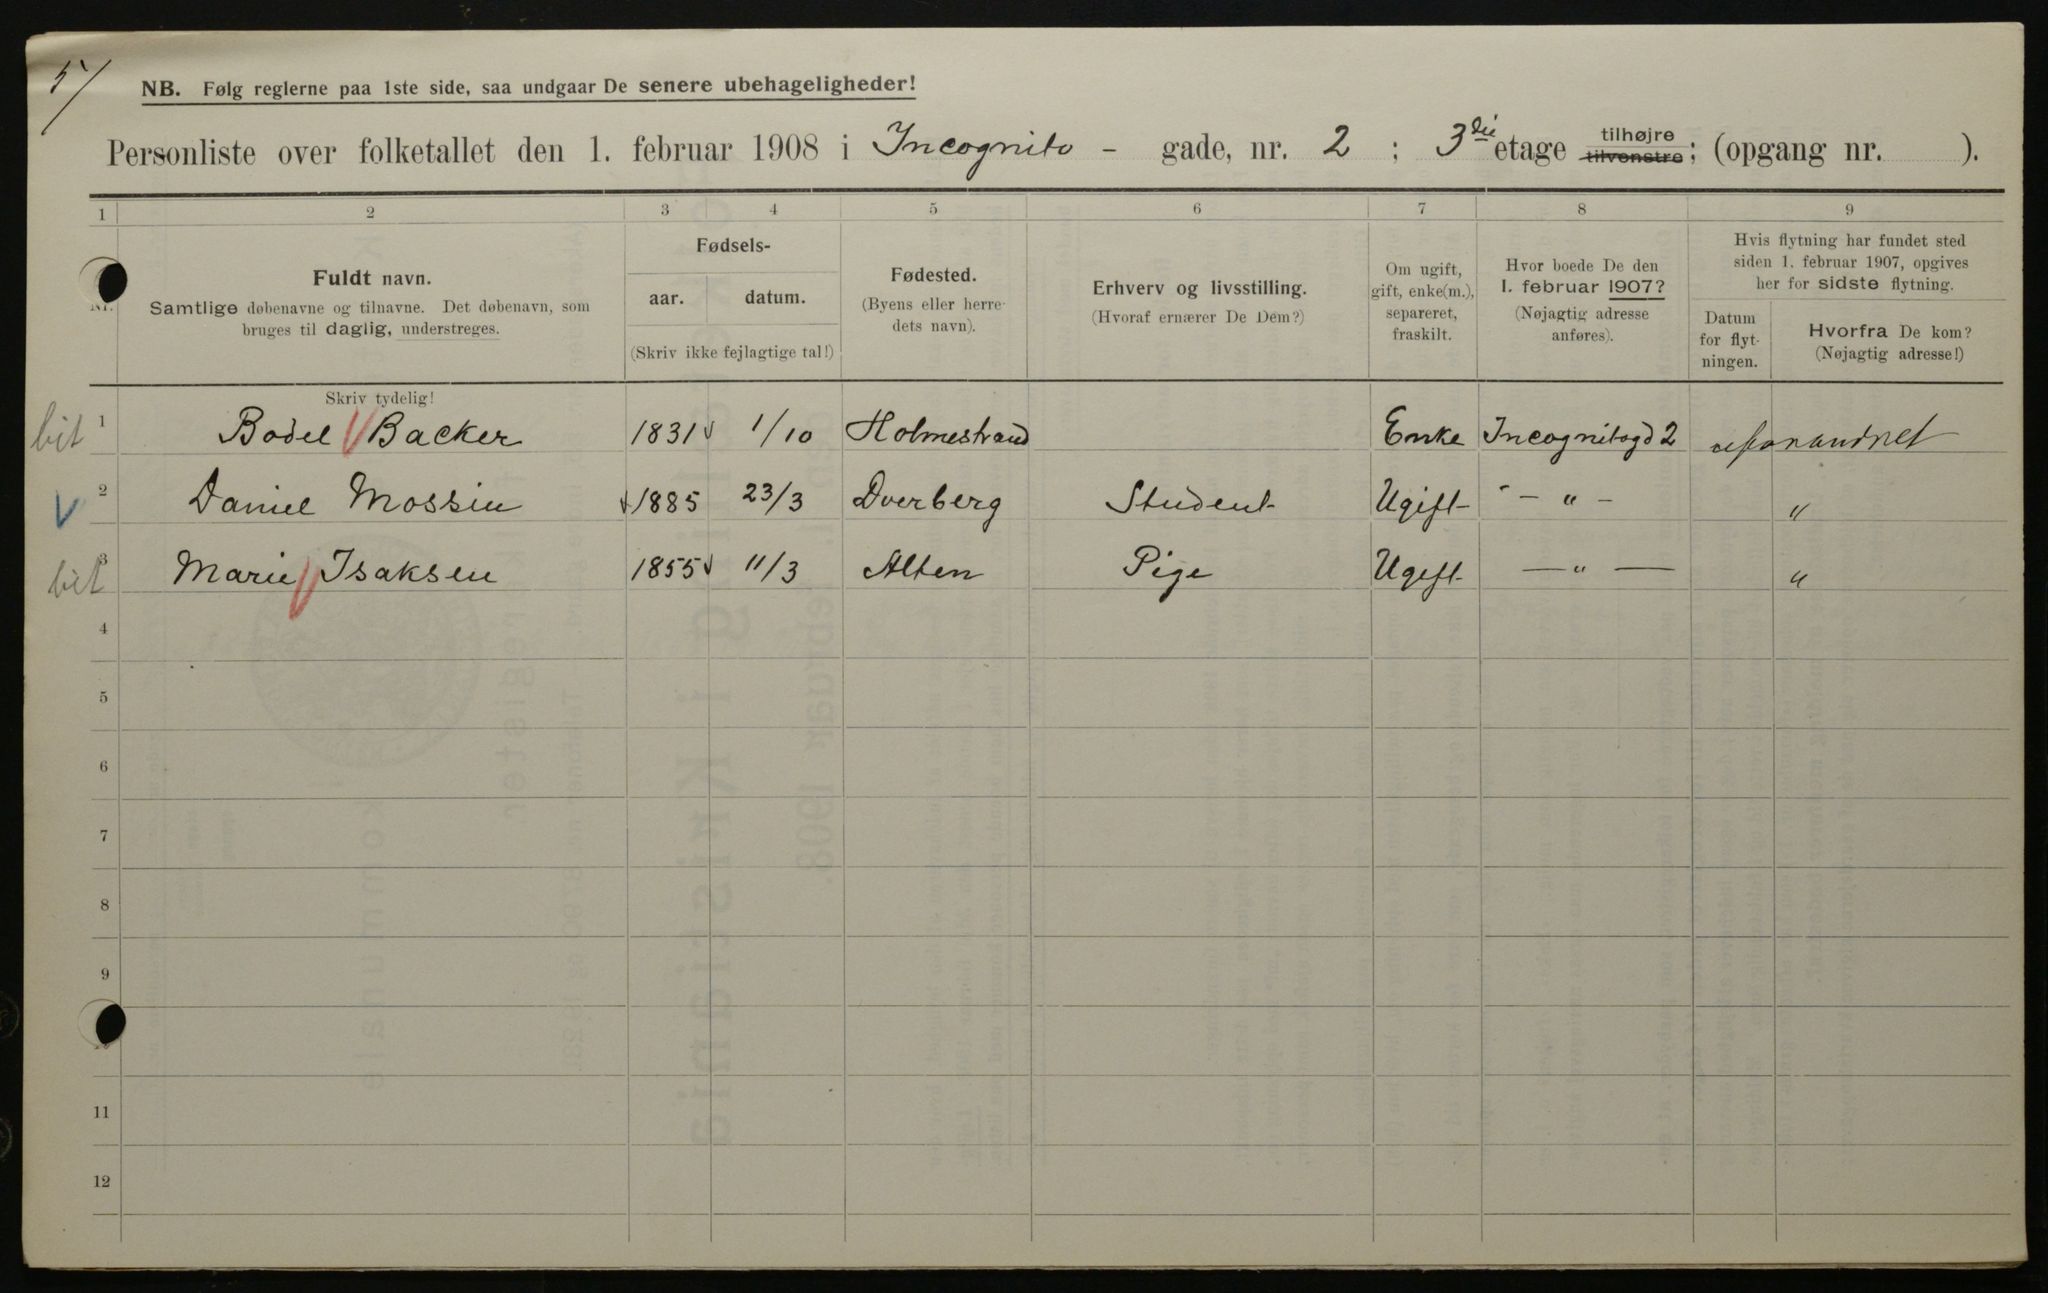 5/
NB. Følg reglerne paa 1ste side, saa undgaar De senere ubehageligheder!
Personliste over folketallet den 1. februar 1908 i Incognito - gade, nr. 2 ; 3die etage tilhøjre tilvenstre; (opgang nr. ).
1 2 3 4 5 6 7 8 9
Nr.
Fuldt navn.
Samtlige døbenavne og tilnavne. Det døbenavn, som
bruges til daglig, understreges.
Fødsels-
aar. datum.
(Skriv ikke fejlagtige tal!)
Fødested.
(Byens eller herre-
dets navn).
Erhverv og livsstilling.
(Hvoraf ernærer De Dem?)
Om ugift,
gift, enke(m.),
separeret,
fraskilt.
Hvor boede De den
1. februar 1907?
(Nøjagtig adresse
anføres).
Hvis flytning har fundet sted
siden 1. februar 1907, opgives
her for sidste flytning.
Datum
for flyt-
ningen.
Hvorfra De kom?
(Nøjagtig adresse!)
Skriv tydelig!
bit 1 Bodel Backer 1831 1/10 Holmestrand Enke Incognitogd 2
2 Daniel Mossin 1885 23/3 Dverberg Student Ugift - " - "
bit 3 Marie Isaksen 1855 11/3 Alten Pige Ugift — " — "
4
5
6
7
8
9
11
12